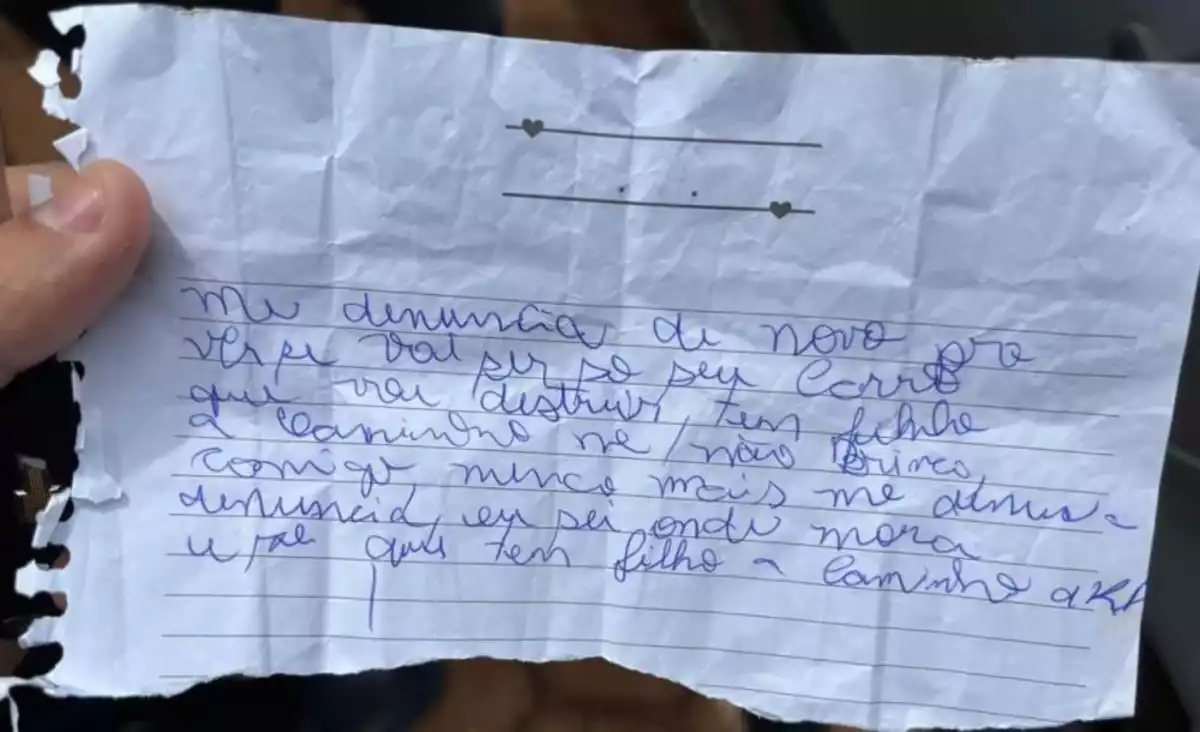 Me denuncia de novo pra
ver se vai ser so seu carro
que vai destruir, tem filho
a caminho ne, não brinca
comigo, nunca mais me denus
denuncia, eu sei onde mora
e que tem filho a caminho